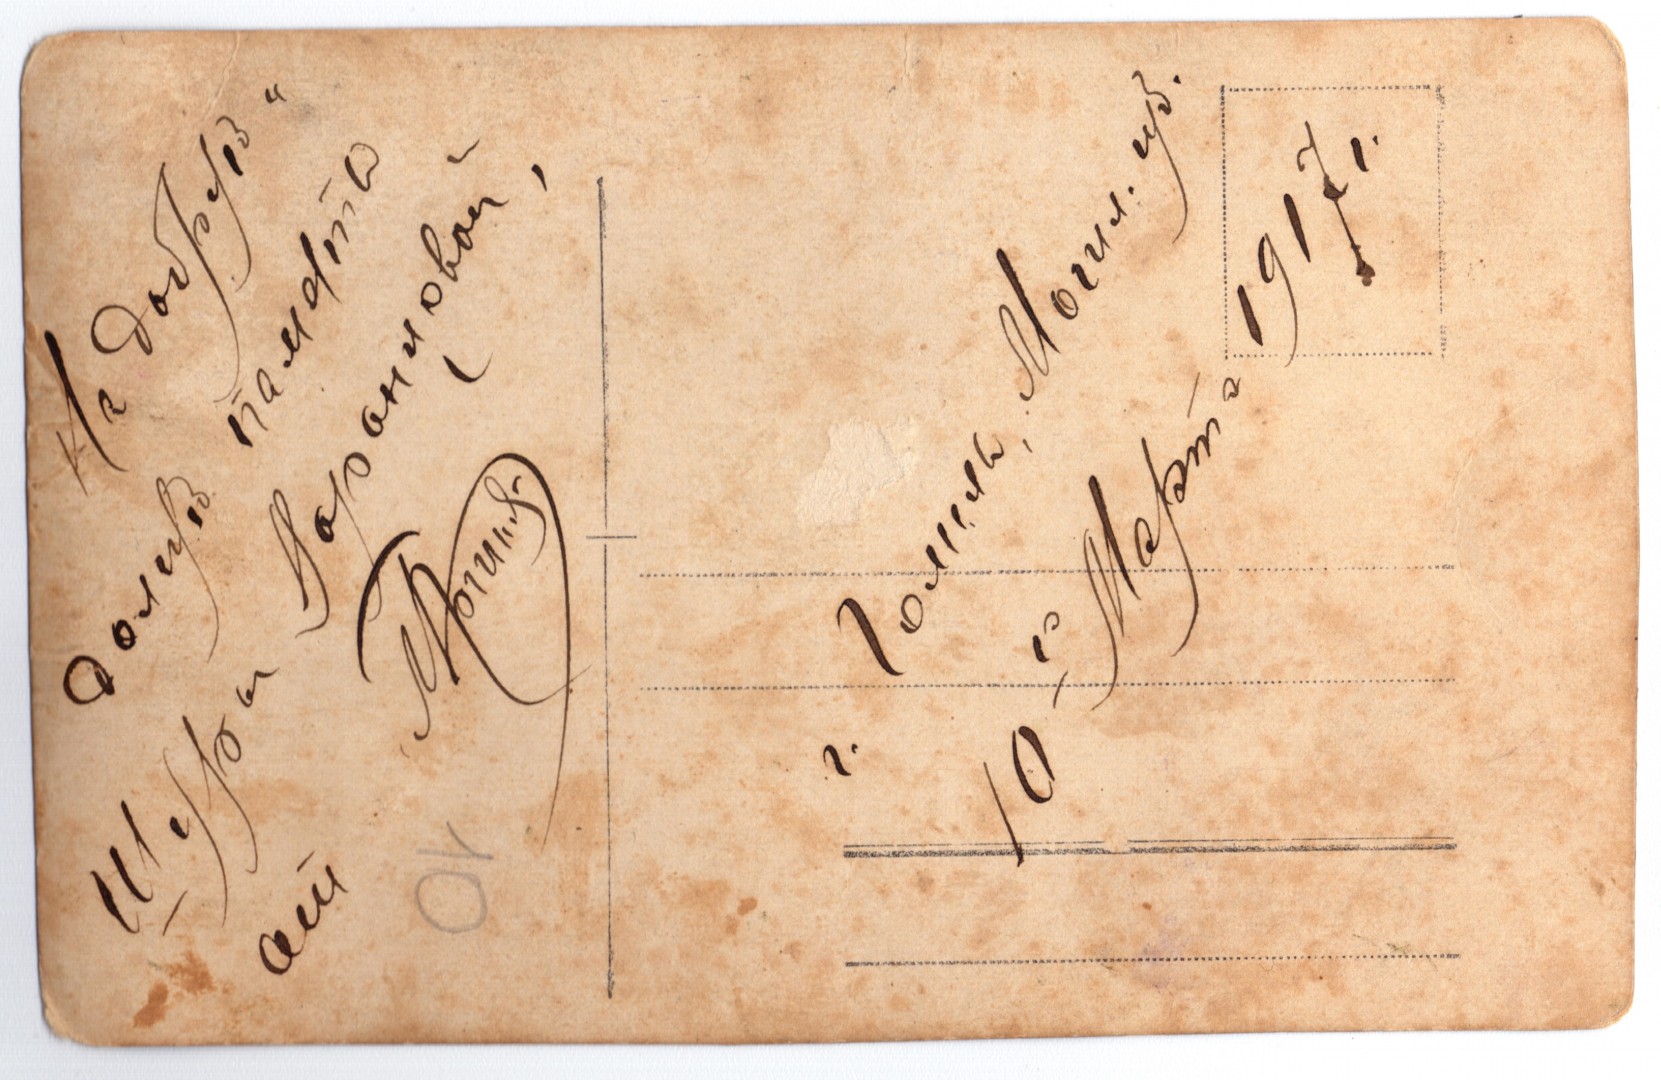 На добрую и
долгую память
Шуры Воронцовой,
от
г. Гомель, Могил. губ.
10-го Марта 1917 г.
10